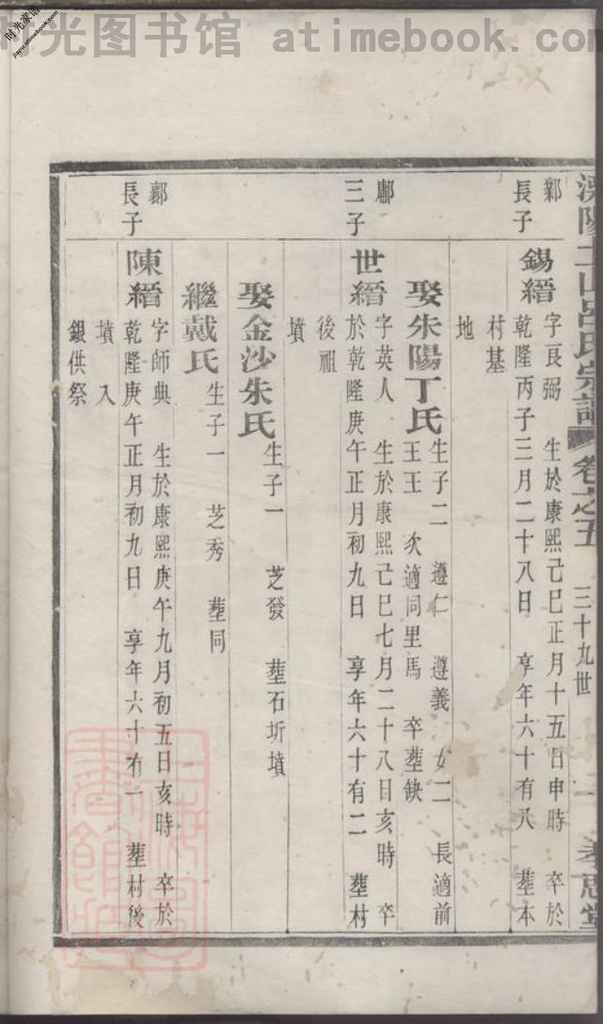 时光图书馆 atimebook.com
溧陽上山呂氏宗譜 卷之五 三十九世 二 孝思堂
鄴長子
錫縉 字長弼 生於康熙己巳正月十五日申時 卒於
乾隆丙子三月二十八日 享年六十有八 葬本
村基
地
娶朱陽丁氏 生子二 遵仁 遵義 女二 長適前
王王 次適同里馬 卒葬缺
鄘三子
世縉 字英人 生於康熙己巳七月二十八日亥時 卒
於乾隆庚午正月初九日 享年六十有二 葬村
後祖
墳
娶金沙朱氏 生子一 芝發 葬石圻墳
繼戴氏 生子一 芝秀 葬同
鄰長子
陳縉 字師典 生於康熙庚午九月初五日亥時 卒於
乾隆庚午正月初九日 享年六十有一 葬村後
墳 入
銀供祭